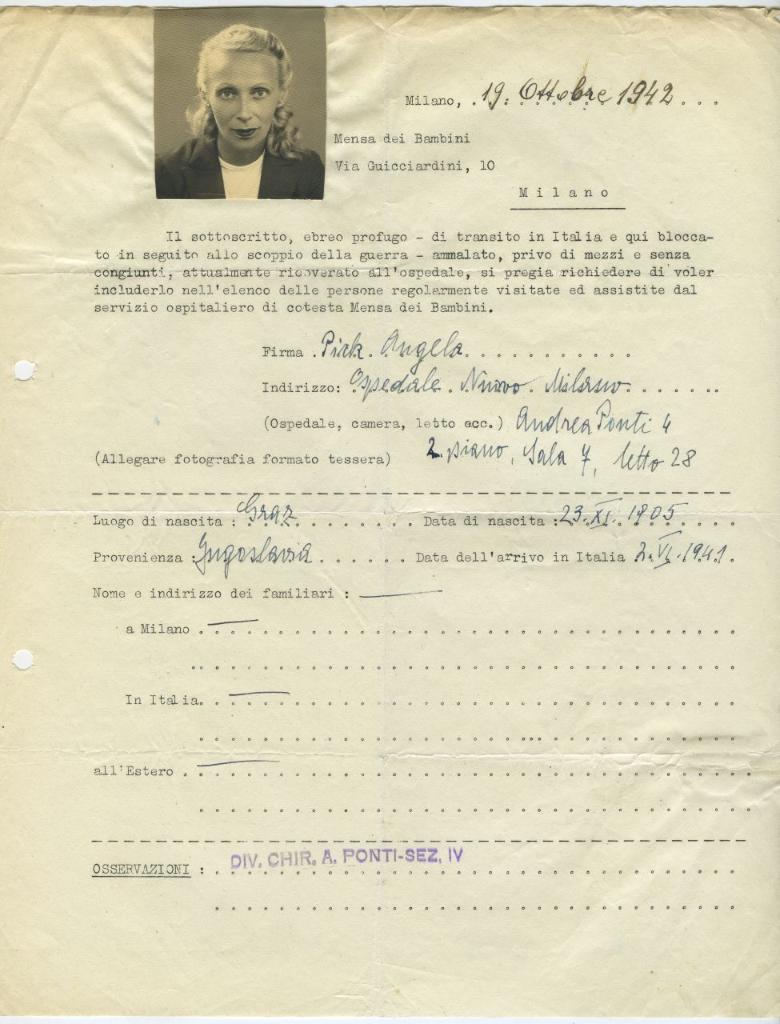 Milano, 19. Ottobre 1942
Mensa dei Bambini
Via Guicciardini, 10
Milano
Il sottoscritto, ebreo profugo - di transito in Italia e qui blocca-
to in seguito allo scoppio della guerra - ammalato, privo di mezzi e senza
congiunti, attualmente ricoverato all'ospedale, si pregia richiedere di voler
includerlo nell'elenco delle persone regolarmente visitate ed assistite dal
servizio ospitaliero di cotesta Mensa dei Bambini.
Firma Pick Angela
Indirizzo: Ospedale Nuovo Milano
(Ospedale, camera, letto ecc.) Andrea Ponti 4
(Allegare fotografia formato tessera) 2. piano, Sala 7, letto 28
Luogo di nascita : Graz Data di nascita : 23. XI. 1905
Provenienza : Jugoslavia Data dell'arrivo in Italia 2. VI. 1941.
Nome e indirizzo dei familiari :
a Milano
In Italia
all'Estero
OSSERVAZIONI : DIV. CHIR. A. PONTI-SEZ. IV